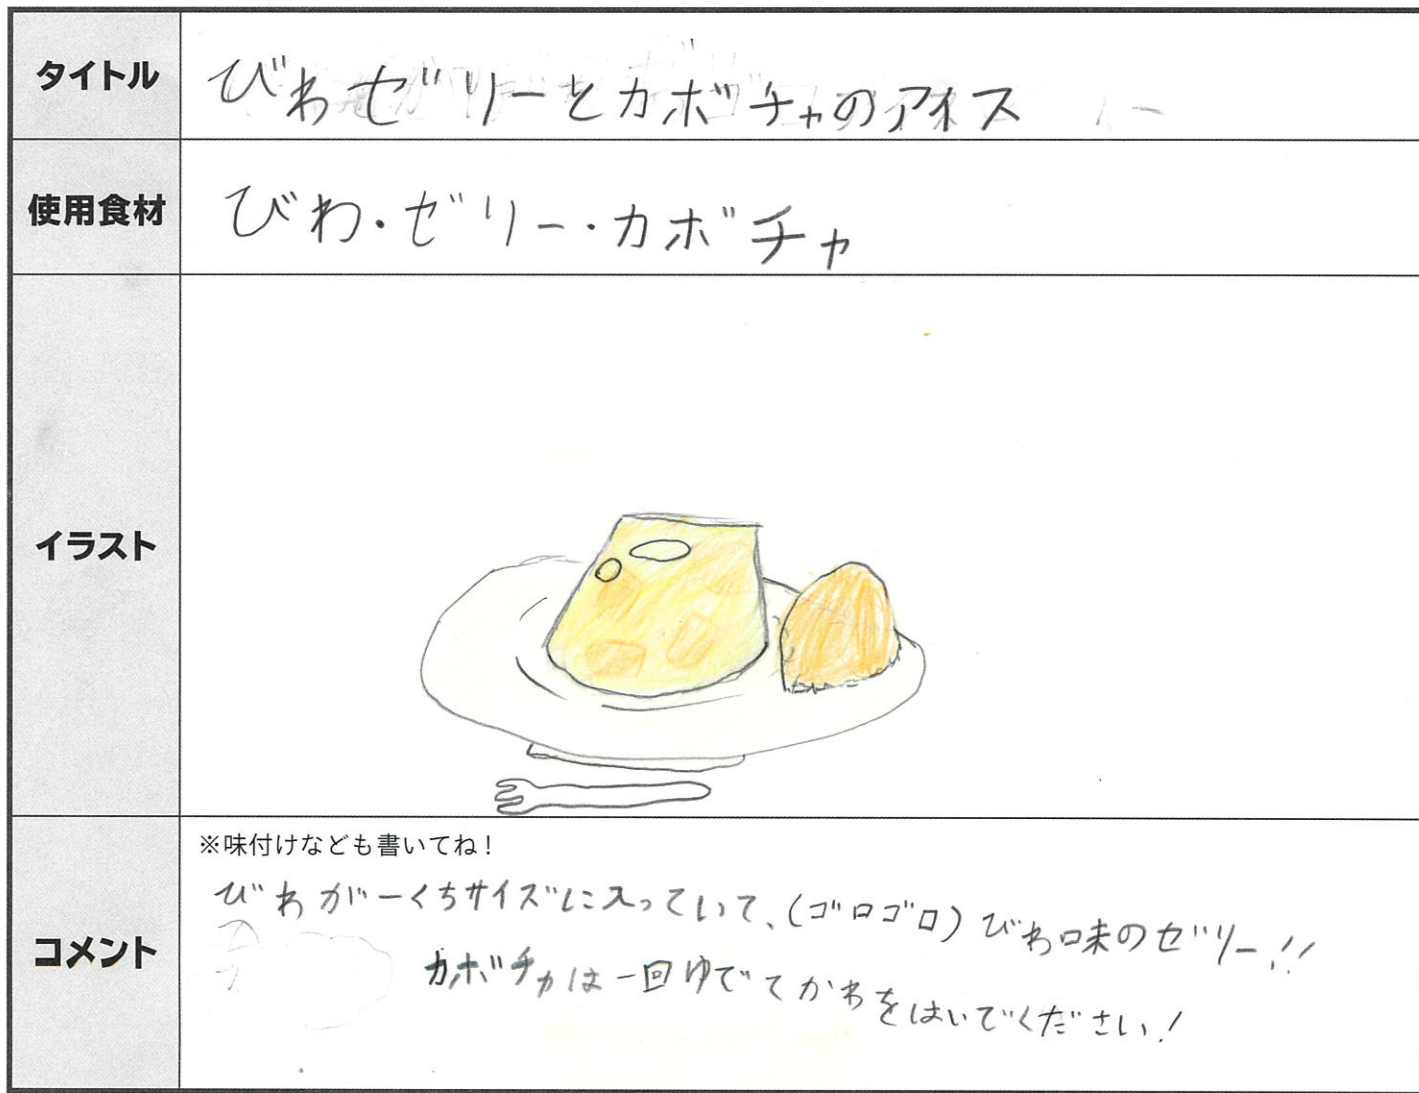 タイトル
びわゼリーとカボチャのアイス
使用食材
びわ・ゼリー・カボチャ
イラスト
コメント
※味付けなども書いてね！
びわが一くちサイズに入っていて、(ゴロゴロ)びわ味のゼリー!!
カボチャは一回ゆでてかわをはいでください!